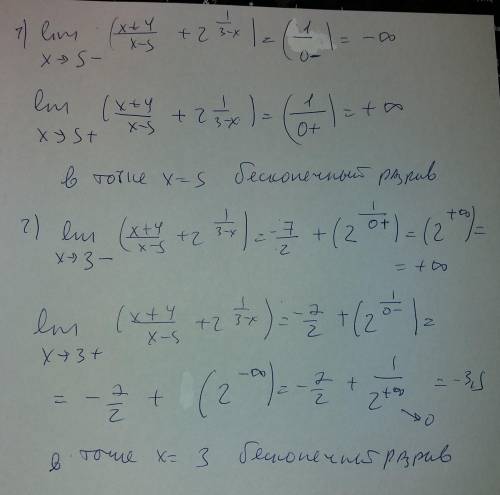 1) lim (x+4/x-5 + 2^(1/3-x)) = (1/0-) = -∞
x→5-
lim (x+4/x-5 + 2^(1/3-x)) = (1/0+) = +∞
x→5+
в точке x=5 бесконечный разрыв
2) lim (x+4/x-5 + 2^(1/3-x)) = -7/2 + (2^(1/0+)) = (2^(+∞)) =
x→3-
= +∞
lim (x+4/x-5 + 2^(1/3-x)) = -7/2 + (2^(1/0-)) =
x→3+
= -7/2 + (2^(-∞)) = -7/2 + 1/2^(+∞) = -3,5
→0
в точке x= 3 бесконечный разрыв